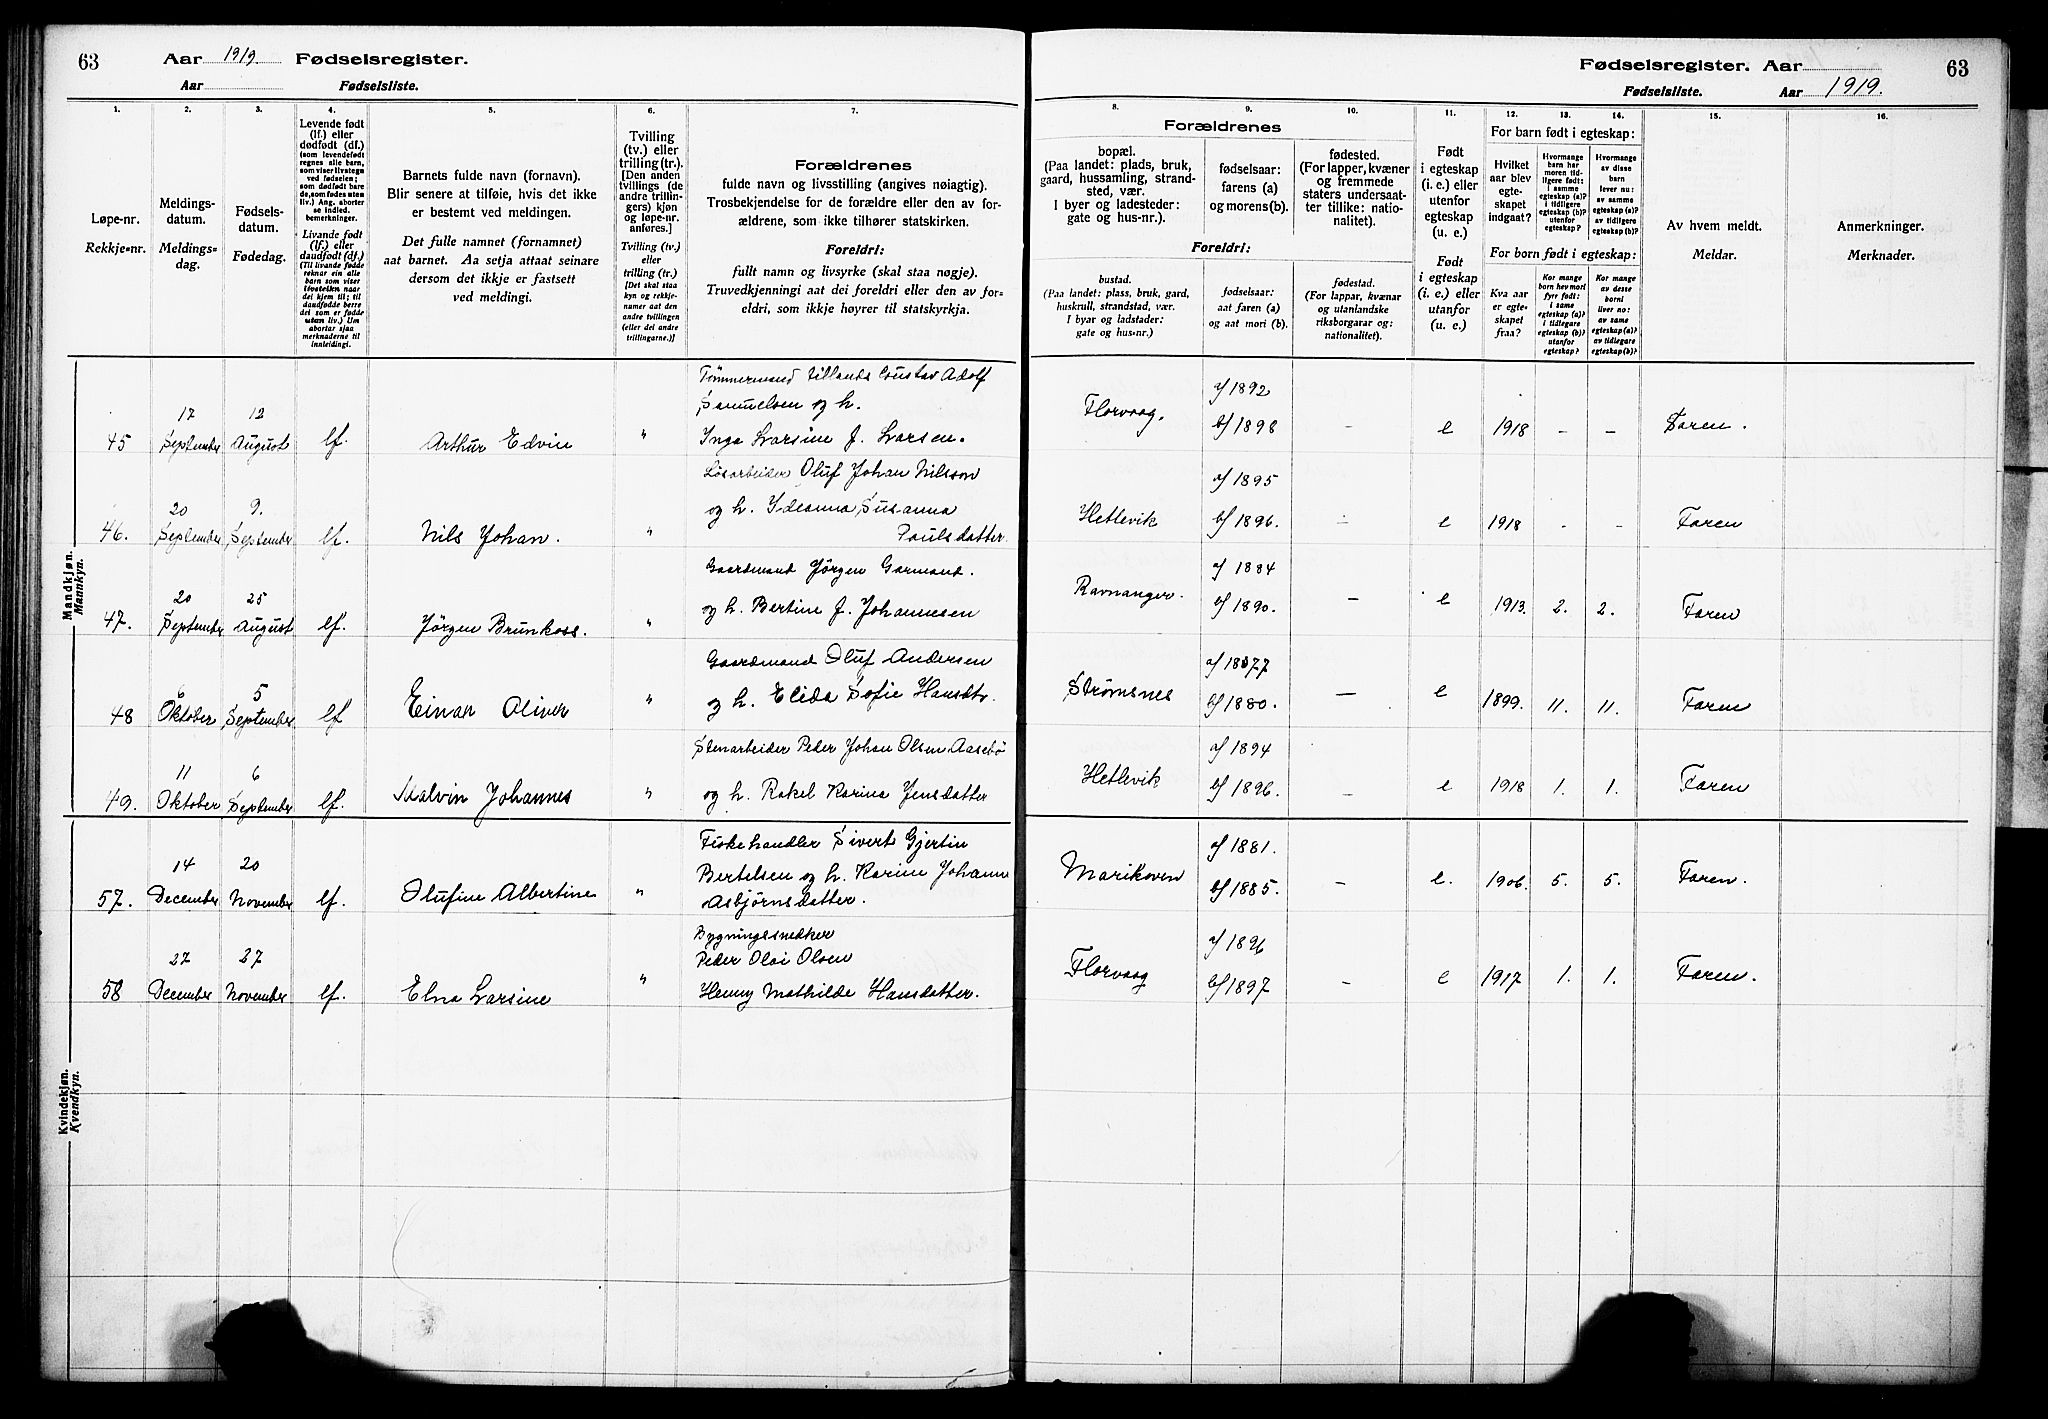 63
Aar 1919. Fødselsregister.
Aar Fødselsliste.
Fødselsregister. Aar
Fødselsliste. Aar 1919.
63
1.
Løpe-nr.
Rekkje-nr.
2.
Meldings-
datum.
Meldings-
dag.
3.
Fødsels-
datum.
Fødedag.
4.
Levende født
(lf.) eller
dødfødt (df.)
(som levendefødt
regnes alle barn,
som viser livstegn
ved fødselen;
som dødfødt bare
de, som fødes uten
liv.) Ang. aborter
se indled.
bemerkninger.
Livande født
(lf.) eller
daudfødt (df.)
(Til livande fødde
reknar ein alle
born som viser
livsteikn naar
dei kjem til; til
daudfødde berre
dei som er fødde
utan liv.) Um
abortar sjaa
merknaderne til
innleidingi.
5.
Barnets fulde navn (fornavn).
Blir senere at tilføie, hvis det ikke
er bestemt ved meldingen.
Det fulle namnet (fornamnet)
aat barnet. Aa setja attaat seinare
dersom det ikkje er fastsett
ved meldingi.
6.
Tvilling
(tv.) eller
trilling (tr.).
[Den anden
tvillings (de
andre trillin-
gers) kjøn
og løpe-nr.
anføres.]
Tvilling (tv.)
eller
trilling (tr.)
[Det skal staa
kyn og rekkje-
numer aat den
andre tvillingen
(eller dei andre
trillingarne.)]
7.
Forældrenes
fulde navn og livsstilling (angives nøiagtig).
Trosbekjendelse for de forældre eller den av for-
ældrene, som ikke tilhører statskirken.
Foreldri:
fullt namn og livsyrke (skal staa nøgje).
Truvedkjenningi aat dei foreldri eller den av for-
eldri, som ikkje høyrer til statskyrkja.
Forældrenes
8.
bopæl.
(Paa landet: plads, bruk,
gaard, hussamling, strand-
sted, vær.
I byer og ladesteder:
gate og hus-nr.).
9.
fødselsaar:
farens (a)
og morens (b).
10.
fødested.
(For lapper, kvæner
og fremmede
staters undersaat-
ter tillike: natio-
nalitet).
Foreldri:
bustad.
(Paa landet: plass, bruk, gard,
huskrull, strandstad, vær.
I byar og ladstader:
gate og hus-nr.)
fødselsaar:
aat faren (a)
og aat mori (b).
fødestad.
(For lappar, kvænar
og utanlandske
riksborgarar og:
nationalitet).
11.
Født
i egteskap
(i. e.) eller
utenfor
egteskap
(u. e.)
Født
i egteskap
(i. e.) eller
utanfor
(u. e.)
12. 13. 14.
For barn født i egteskap:
Hvilket
aar blev
egte-
skapet
indgaat?
Hvormange
barn har
moren tid-
ligere født:
i samme
egteskap (a)?
i tidligere
egteskap (b)?
utenfor
egteskap?
Hvormange
av disse
barn
lever nu:
av samme
egteskap (a)?
av tidligere
egteskap (b)?
For born født i egteskap:
Kva aar
er egte-
skapet
fraa?
Kor mange
born hev mori
fyrr født:
i same
egteskap (a)?
i tidlegare
egteskap (b)?
utanfor
egteskap?
Kor mange
av desse
borni
liver no:
av same
egteskap (a)?
av tidlegare
egteskap (b)?
15.
Av hvem meldt.
Meldar.
16.
Anmerkninger.
Merknader.
Mandkjøn.
Mannkyn.
45 17 September 12 August lf. Arthur Edvin "
Tømmermand Gustav Adolf
Samuelsen og h.
Inga Larsine f. Larsen.
Florvaag. a/ 1892 b/ 1898 – e 1918 – – Faren.
46. 20 September 9. September lf. Nils Johan. "
Løsarbeider Oluf Johan Nilsson
og h. Ideanna Susanna
Paulsdatter
Hetlevik a/ 1895 b/ 1896. – e 1918 - - Faren
47. 20 September 25 August lf. Jörgen Brunkoss. "
Gaardmand Jörgen Garmand.
og h. Bertine f. Johannesen
Ravnanger. a/ 1884 b/ 1890. – e 1913. 2. 2. Faren
48 6 Oktober 5 September lf Einar Oliver "
Gaardmand Oluf Andersen
og h. Elida Sofie Hansdtr.
Strømsnes a/ 1877 b/ 1880. – e 1899. 11. 11. Faren
49. 11 Oktober 6 September lf. Malvin Johannes "
Stenarbeider Peder Johan Olsen Aasebø
og h. Rakel Karina Jensdatter
Hetlevik a/ 1894 b/ 1896. – e 1918 1. 1. Faren
Kvindekjøn.
Kvendkyn.
57. 14 December 20 November lf. Olufine Albertine "
Fiskehandler Sivert Gjertin
Bertelsen og h. Karine Johanne
Asbjørnsdatter.
Marikoven a/ 1881. b/ 1885. – e. 1906. 5. 5. Faren.
58 27 December 27 November lf. Elna Larsine "
Bygningssnedker
Peder Olai Olsen
Henny Mathilde Hansdatter.
Florvaag a/ 1896 b/ 1897 – e 1917 1. 1. Faren.